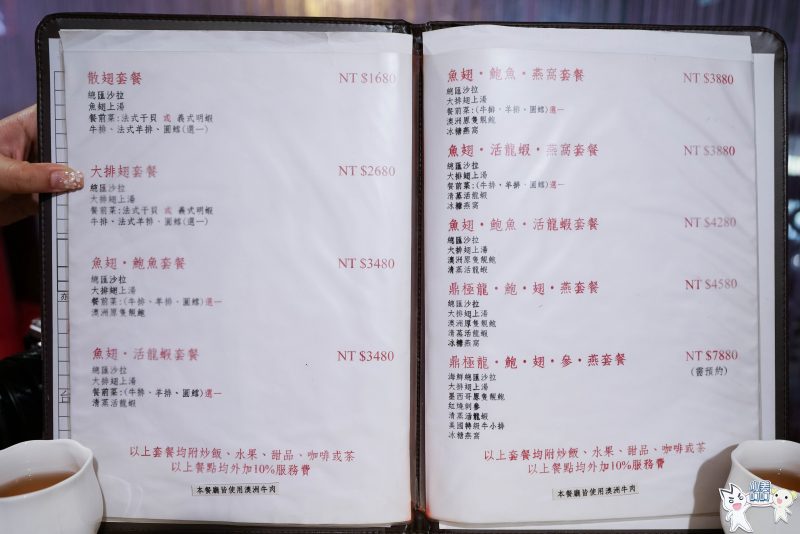 散翅套餐 NT $1680
總匯沙拉
魚翅上湯
餐前菜:法式干貝 或 義式明蝦
牛排、法式羊排、圓鱈(選一)
大排翅套餐 NT $2680
總匯沙拉
大排翅上湯
餐前菜:法式干貝 或 義式明蝦
牛排、法式羊排、圓鱈(選一)
魚翅・鮑魚套餐 NT $3480
總匯沙拉
大排翅上湯
餐前菜:(牛排、羊排、圓鱈)選一
澳洲原隻靚鮑
魚翅・活龍蝦套餐 NT $3480
總匯沙拉
大排翅上湯
餐前菜:(牛排、羊排、圓鱈)選一
清蒸活龍蝦
以上套餐均附炒飯、水果、甜品、咖啡或茶
以上餐點均外加10%服務費
本餐廳皆使用澳洲牛肉
魚翅・鮑魚・燕窩套餐 NT $3880
總匯沙拉
大排翅上湯
餐前菜:(牛排、羊排、圓鱈)選一
澳洲原隻靚鮑
冰糖燕窩
魚翅・活龍蝦・燕窩套餐 NT $3880
總匯沙拉
大排翅上湯
餐前菜:(牛排、羊排、圓鱈)選一
清蒸活龍蝦
冰糖燕窩
魚翅・鮑魚・活龍蝦套餐 NT $4280
總匯沙拉
大排翅上湯
澳洲原隻靚鮑
清蒸活龍蝦
鼎極龍・鮑・翅・燕套餐 NT $4580
總匯沙拉
大排翅上湯
澳洲原隻靚鮑
清蒸活龍蝦
冰糖燕窩
鼎極龍・鮑・翅・參・燕套餐 NT $7880
(需預約)
海鮮總匯沙拉
大排翅上湯
墨西哥原隻靚鮑
紅燒刺參
清蒸活龍蝦
美國特級牛小排
冰糖燕窩
以上套餐均附炒飯、水果、甜品、咖啡或茶
以上餐點均外加10%服務費
本餐廳皆使用澳洲牛肉